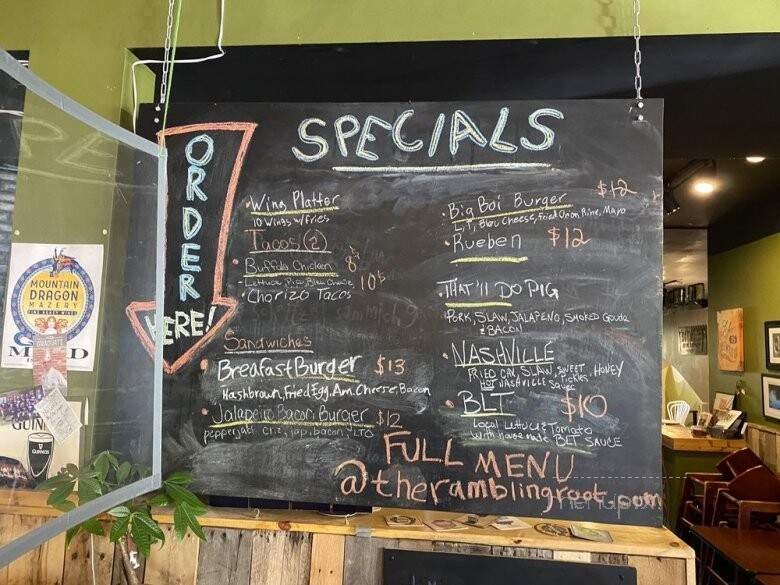 SPECIALS
ORDER
HERE!
• Wing Platter
10 Wings w/Fries
Tacos (2)
• Buffalo Chicken 8
Lettuce, Pico, Bleu Cheese
• Chorizo Tacos 10
Sandwiches
• BreafastBurger $13
Hashbrown, Fried Egg, Am. Cheese, Bacon
• Jalapeño Bacon Burger $12
pepperjack chz, jap, bacon, LTO
• Big Boi Burger $12
L,T, Bleu Cheese, Fried Onion Ring, Mayo
• Rueben $12
• THAT'll DO PIG
PORK, SLAW, JALAPENO, SMOKED Gouda
& BACON
• NASHVILLE
FRIED CKN, SLAW, SWEET HONEY
HOT NASHVILLE SAUCE, Pickles
• BLT $10
Local Lettuce & Tomato
with house made BLT SAUCE
FULL MENU
@theramblingroot.com
MOUNTAIN
DRAGON
MAZERY
FINE HONEY WINES
GUINNESS